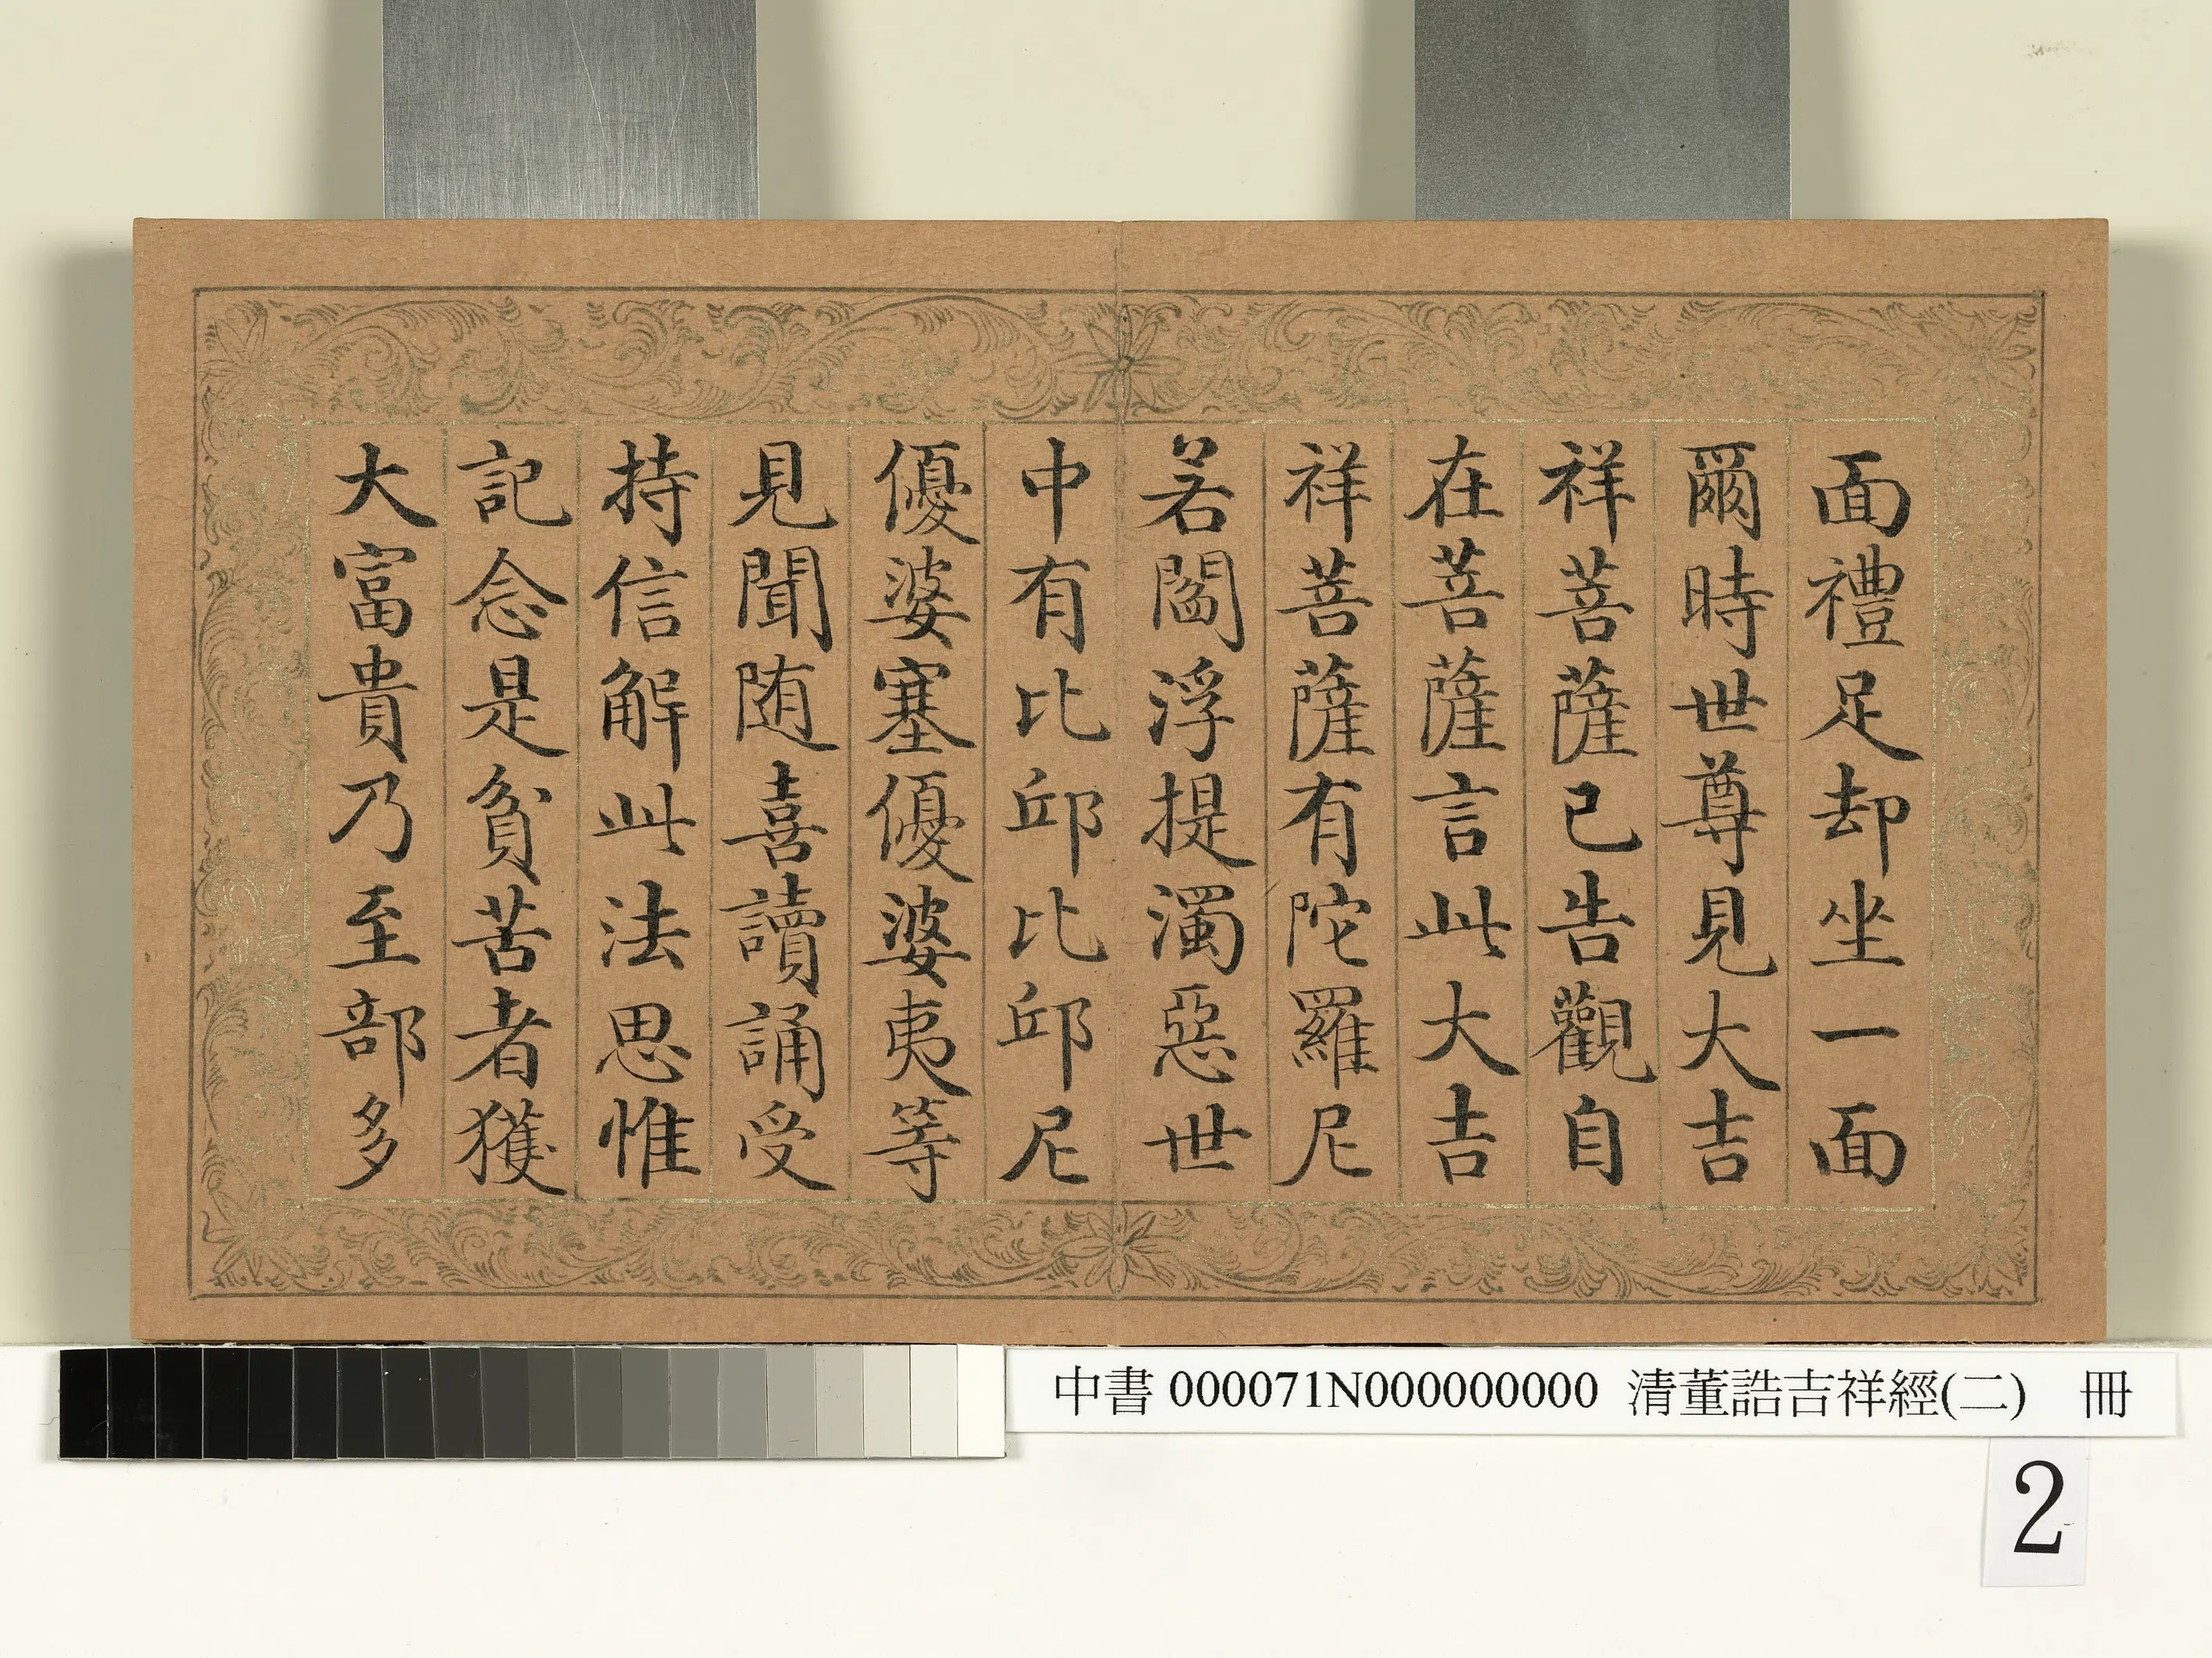 面禮足却坐一面
爾時世尊見大吉
祥菩薩已告觀自
在菩薩言此大吉
祥菩薩有陀羅尼
若閻浮提濁惡世
中有比邱比邱尼
優婆塞優婆夷等
見聞随喜讀誦受
持信解此法思惟
記念是貧苦者獲
大富貴乃至部多
中書 000071N000000000 清董誥吉祥經(二) 冊
2